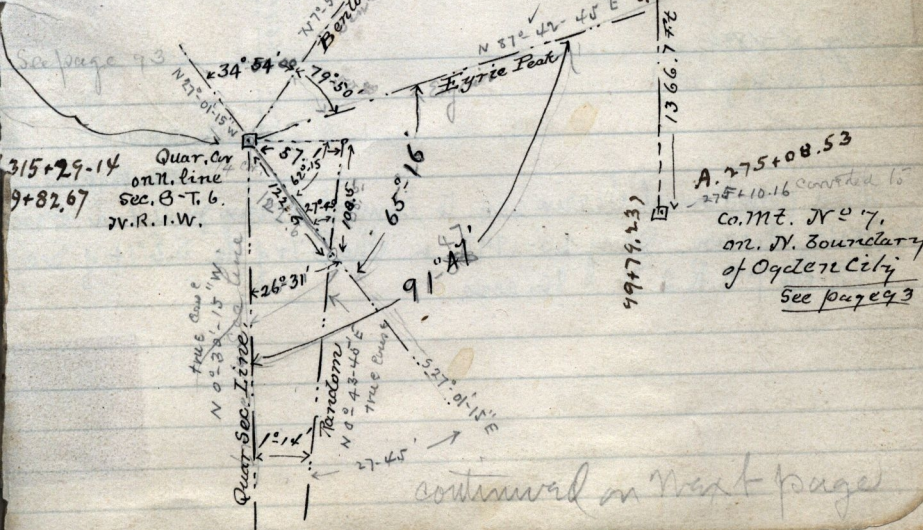 See page 93
N 27°-01-15" W
34° 54'
79°-50'
N 87° 42-45 E
Eyrie Peak
1366.7 ft
315+29-14
9+82.67
Quar. Cor
on N. line
Sec. 8-T. 6.
N.R. 1.W.
57.
62°-15'
122.6
27°-45
108.5
65°-16'
91° 47'
26°-31'
99+79.23)
A. 275+08.53
275+10.16 corrected to
Co. Mt. No 7.
on. N. Boundary
of Ogden City
See page 93
N 0°-30'-15" W
Quar. Sec. Line.
Random
N 0°-43-45" E
S 27°-01-15" E
1°-14'
27-45
continued on Next page